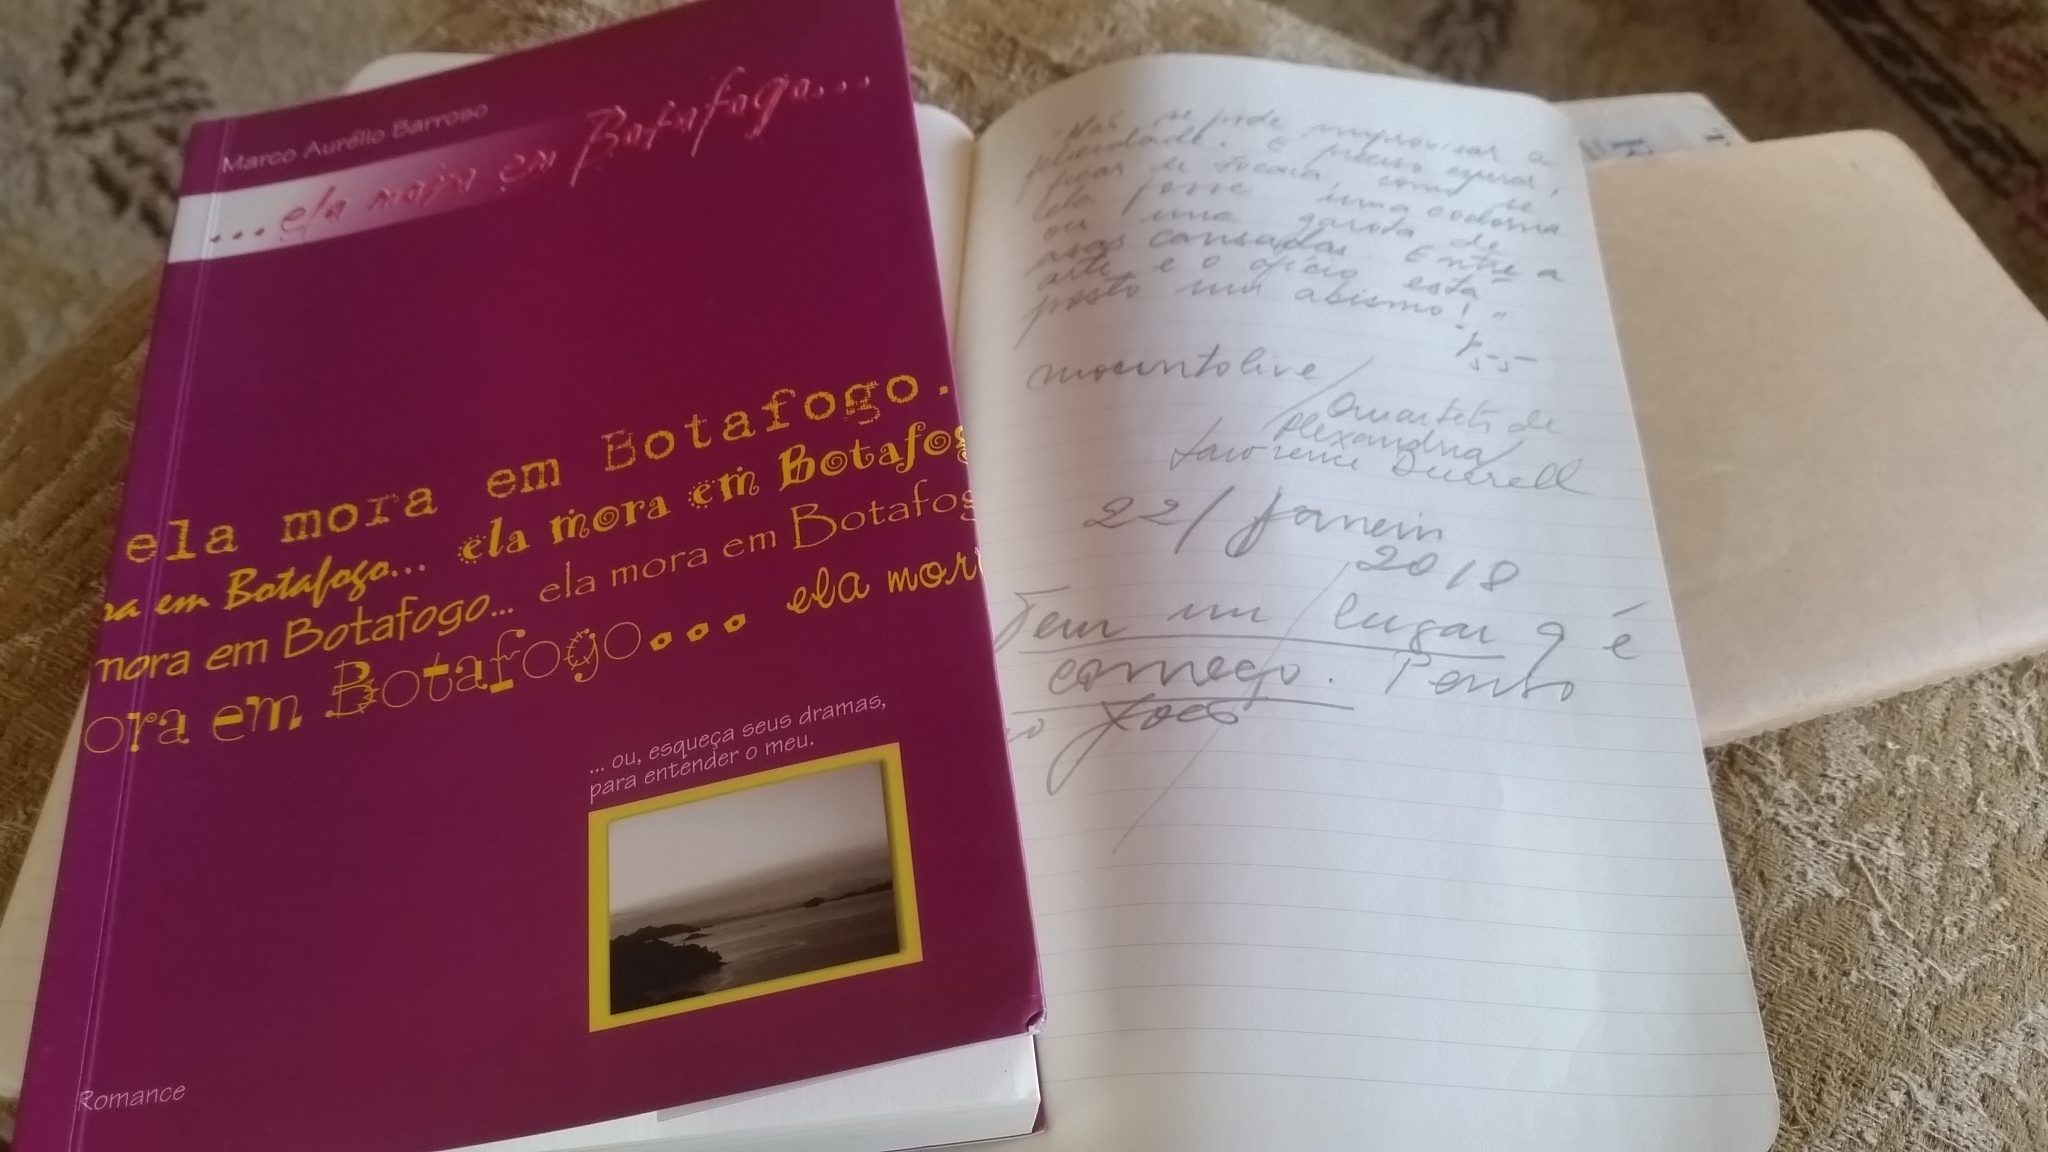 Marco Aurélio Barroso
...ela mora em Botafogo...
ela mora em Botafogo.
ra em Botafogo... ela mora em Botafog
mora em Botafogo... ela mora em Botafog
ora em Botafogo... ela mor
... ou, esqueça seus dramas,
para entender o meu.
Romance
"Não se pode improvisar a
felicidade. É preciso esperar,
ficar de tocaia, como se
ela fosse uma codorna
ou uma garota de
asas cansadas Entre a
arte e o ofício está
posto um abismo!"
p.55
mountolive/
Quarteto de
Alexandria/
Lawrence Durrell
22/Janeiro
2018
Tem um lugar q é
começo. Penso